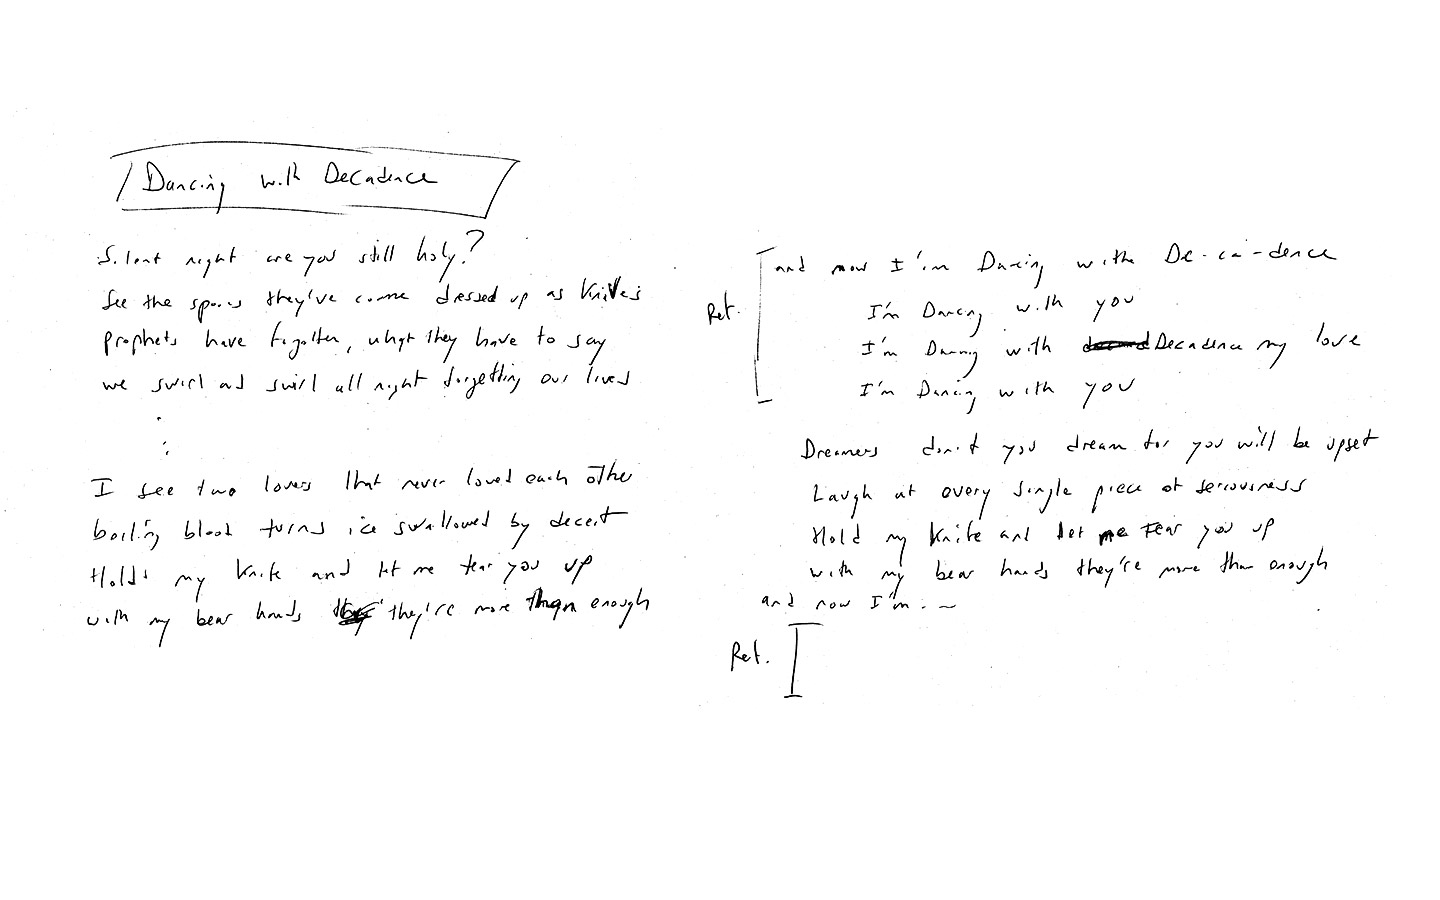 Dancing with Decadence
Silent night are you still holy?
See the spoons they've come dressed up as Knives
prophets have forgotten, what they have to say
we swirl and swirl all night forgetting our lives
I see two lovers that never loved each other
boiling blood turns ice swallowed by deceit
Hold my Knife and let me tear you up
with my bear hands they're more than enough
and now I'm Dancing with De-ca-dence
Ref.
I'm Dancing with you
I'm Dancing with Decadence my love
I'm Dancing with you
Dreamers don't you dream for you will be upset
Laugh at every single piece of seriousness
Hold my Knife and let me tear you up
with my bear hands they're more than enough
and now I'm . ~
Ref.